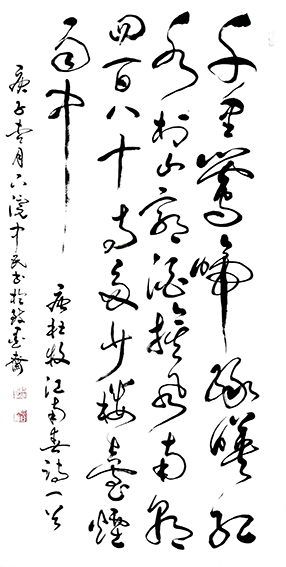 千里鶯啼綠映紅
水村山郭酒旗風南朝
四百八十寺多少樓臺煙
雨中
唐杜牧江南春詩一首
庚子春月 中民書於 墨齋